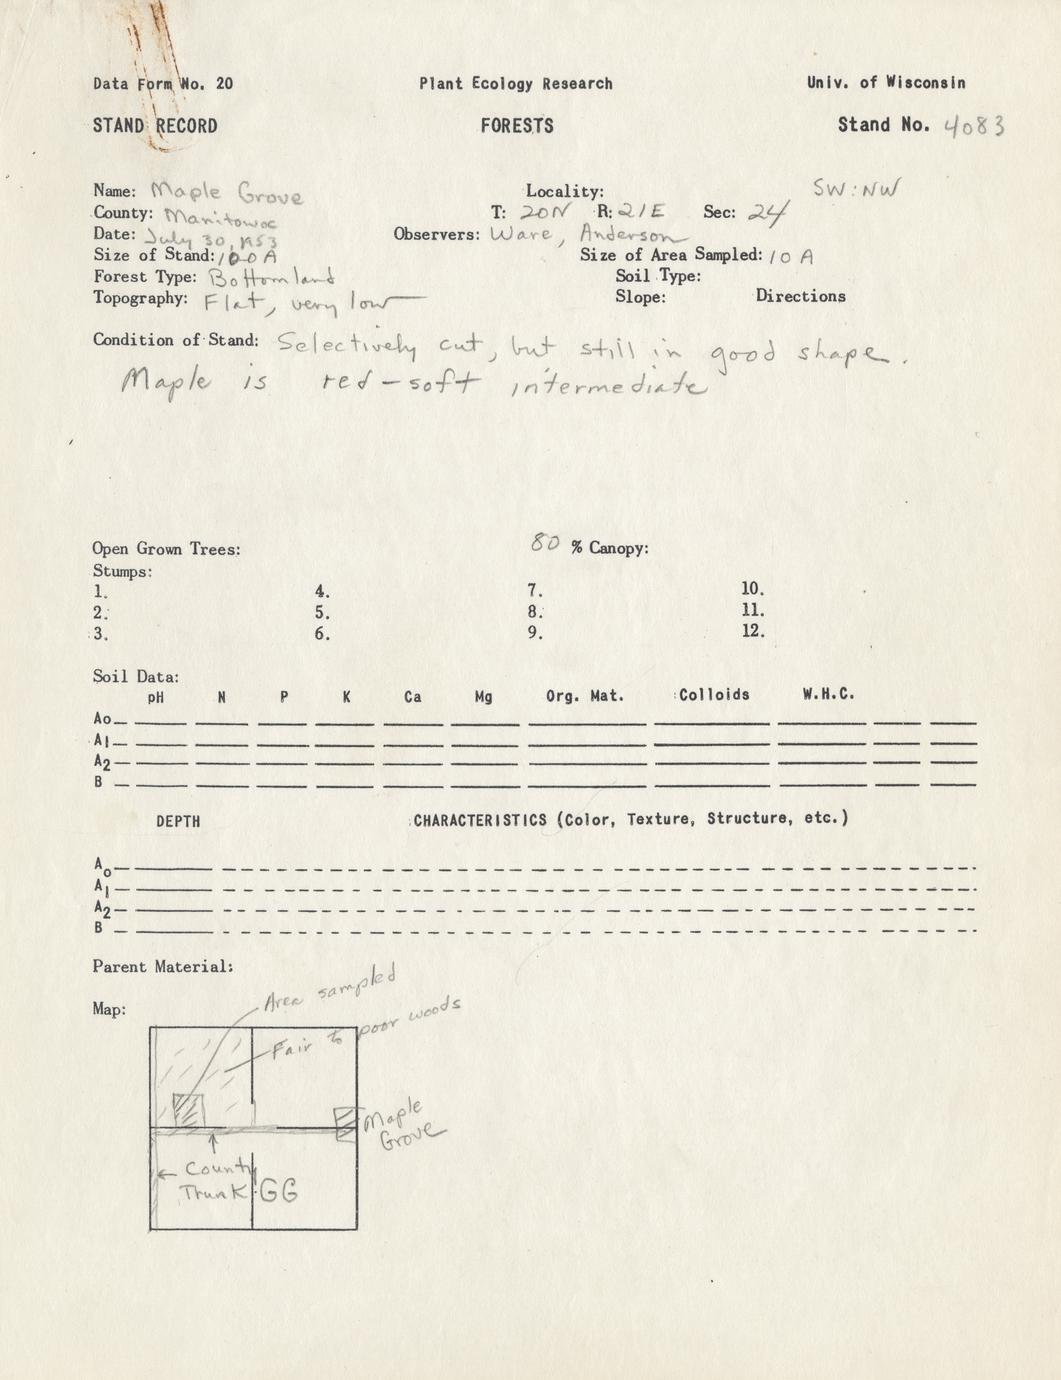 Data Form No. 20 Plant Ecology Research Univ. of Wisconsin
STAND RECORD FORESTS Stand No. 4083
Name: Maple Grove Locality: SW:NW
County: Manitowoc T: 20N R: 21E Sec: 24
Date: July 30, 1953 Observers: Ware, Anderson
Size of Stand: 100 A Size of Area Sampled: 10 A
Forest Type: Bottomland Soil Type:
Topography: Flat, very low Slope: Directions
Condition of Stand: Selectively cut, but still in good shape.
Maple is red-soft intermediate
Open Grown Trees: 80 % Canopy:
Stumps:
1. 4. 7. 10.
2. 5. 8. 11.
3. 6. 9. 12.
Soil Data:
pH N P K Ca Mg Org. Mat. Colloids W.H.C.
Ao
A1
A2
B
DEPTH CHARACTERISTICS (Color, Texture, Structure, etc.)
Ao
A1
A2
B
Parent Material:
Area sampled
Map:
Fair to poor woods
Maple
Grove
County
Trunk GG